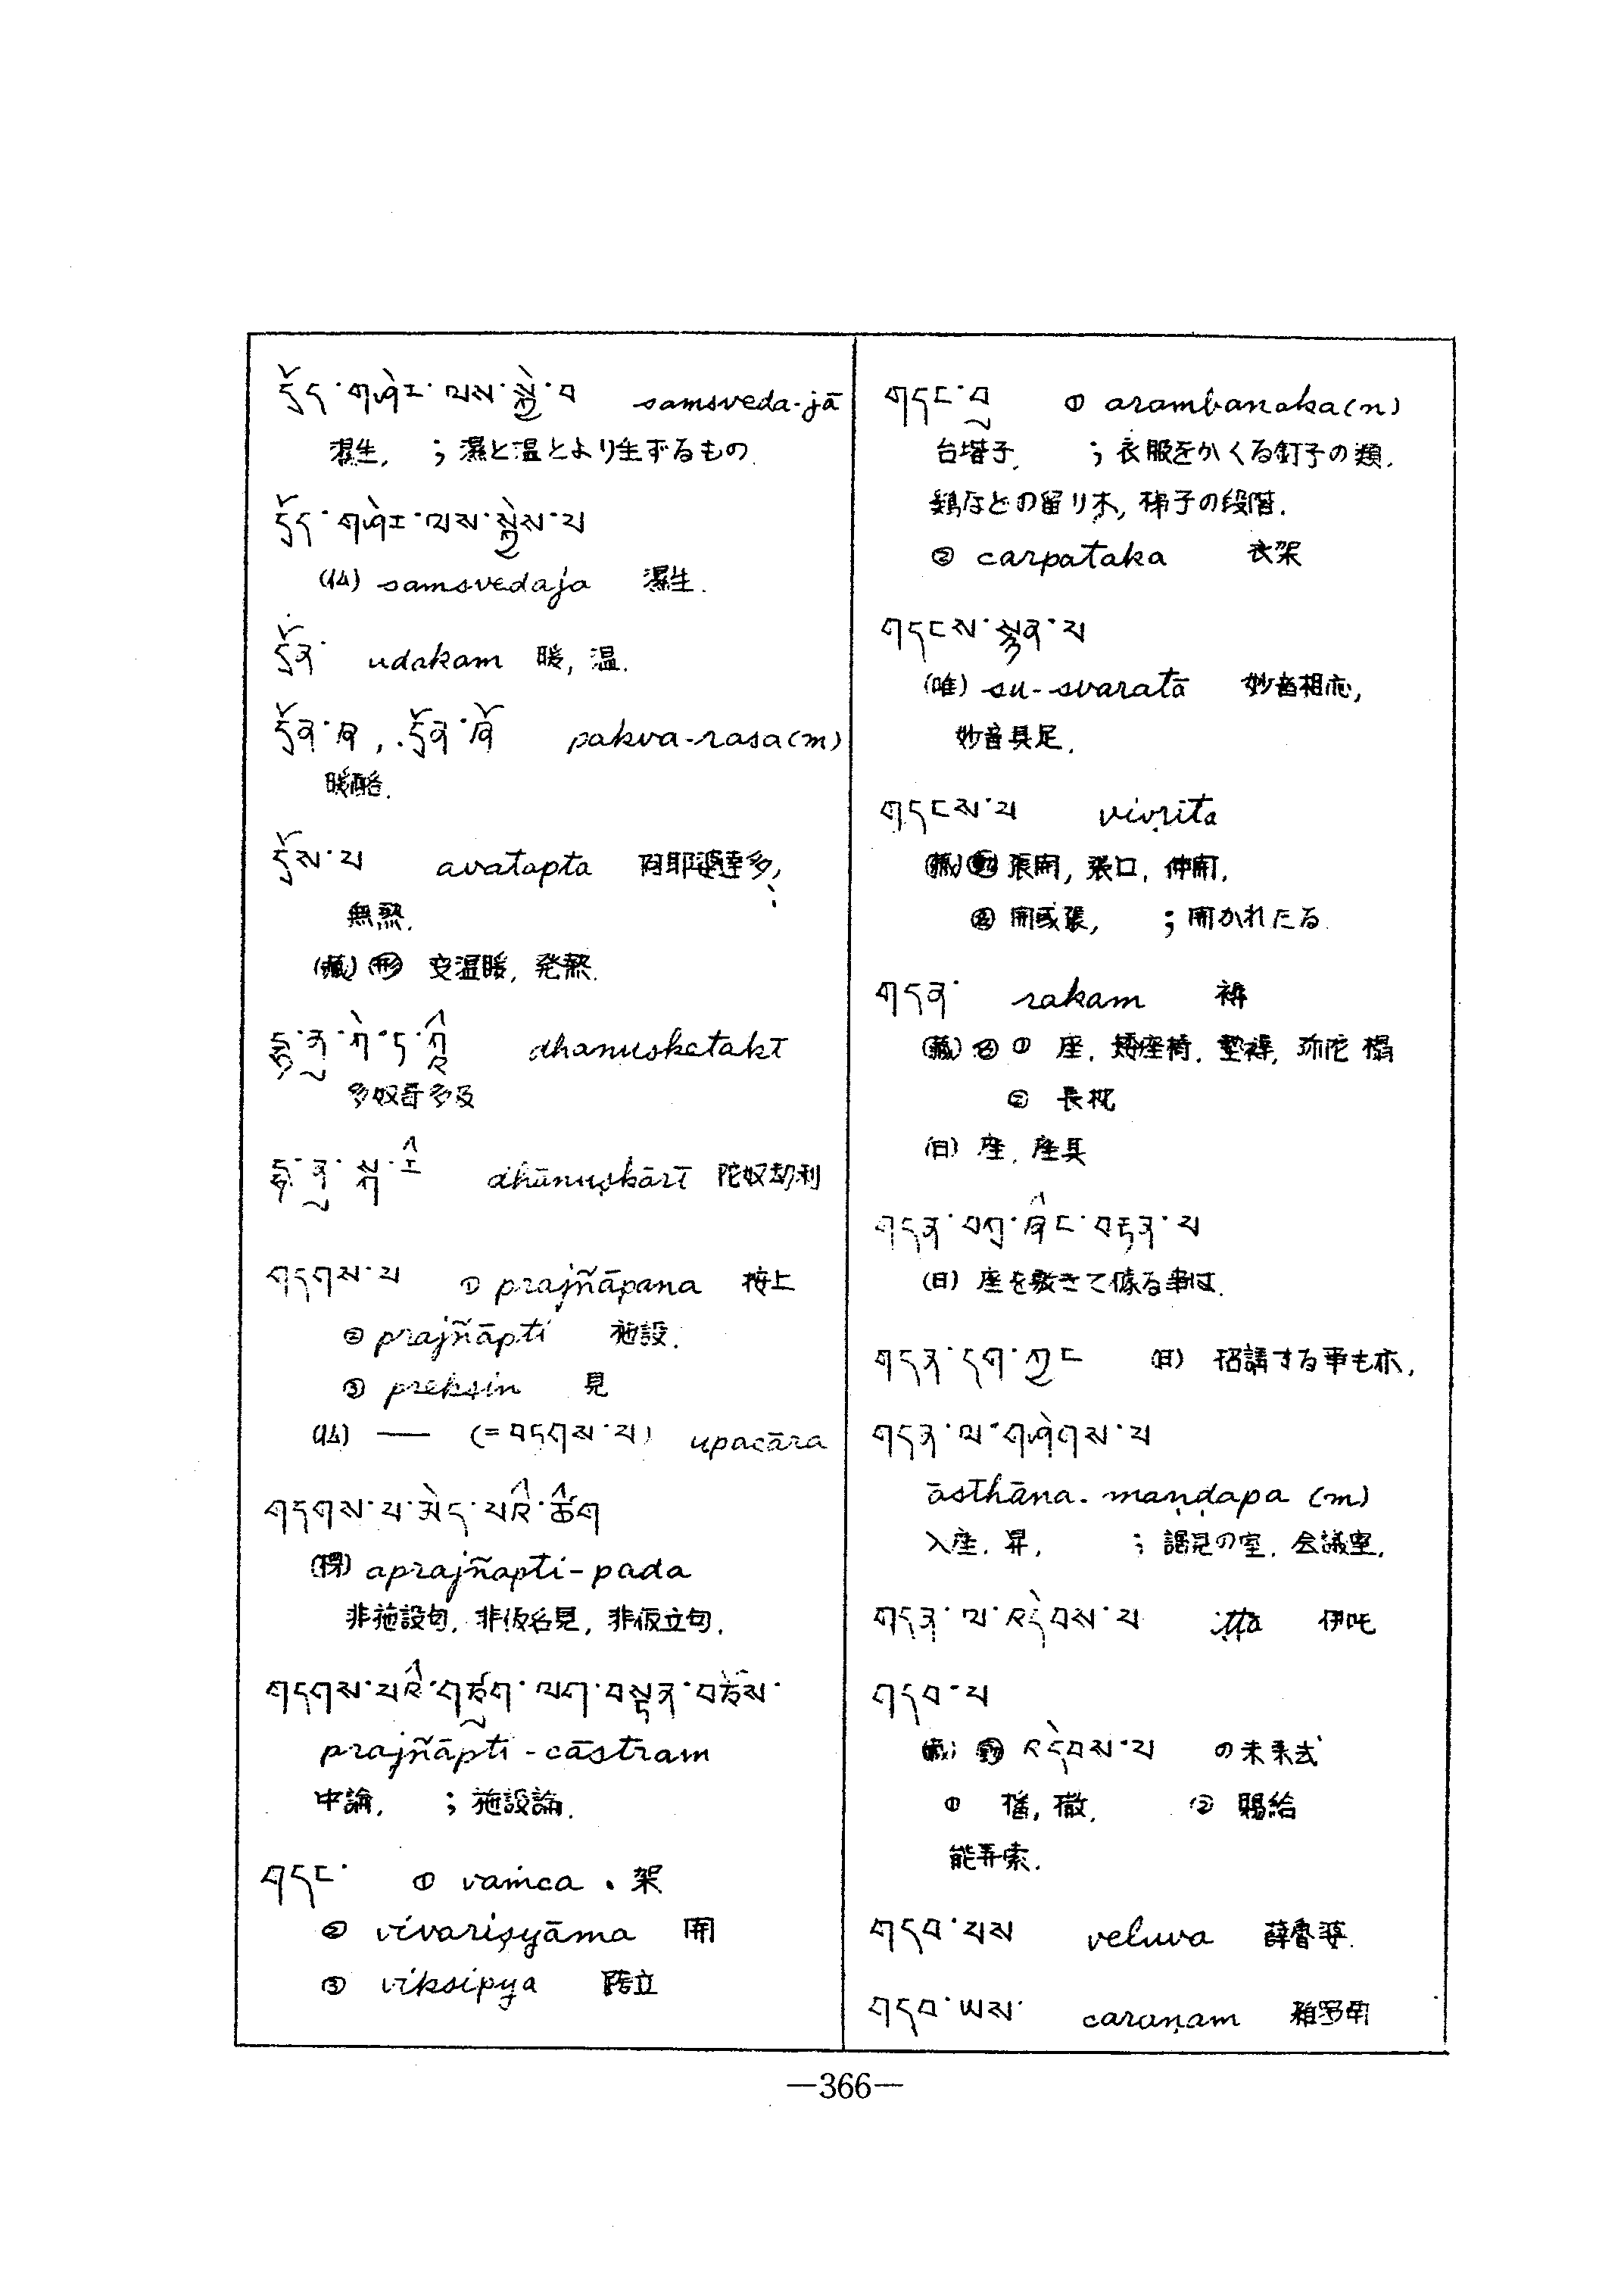 དྲོད་གཤེར་ལས་སྐྱེ་བ samsveda-jā
湿生. ；濕と温とより生ずるもの.
དྲོད་གཤེར་ལས་སྐྱེས་པ
samsvedaja 濕生.
དྲོན་ udakam 暖, 温.
pakva-rasa(m)
暖酪.
དྲོས་པ avatapta 阿耶婆達多,
無熱.
(藏) ㊒ 変温暖, 発熱.
dhanusketakī
多奴哥多及
dhānuṣkārī 陀奴刧利
གདགས་པ ① prajñāpana 按上
② prajñāpti 施設.
③ preksin 見
—— (=བདགས་པ) upacāra
གདགས་པ་མེད་པའི་ཚིག
aprajñapti-pada
非施設句. 非仮名見, 非仮立句.
གདགས་པའི་གཙུག་ལག་བསྟན་བཅོས་
prajñāpti-cāstram
中論, ；施設論.
གདང་ ① vaṁca . 架
② vivariṣyāma 開
③ viksipya 跨立
གདང་བུ ① arambanaka(n)
台堦子. ；衣服をかくる釘子の類.
鷄などの留り木, 梯子の段階.
② carpataka 衣架
གདངས་སྙན་པ
(唯) su-svaratā 妙音相応,
妙音具足.
གདངས་པ vivṛita
(藏) ㊀ 張開, 張口, 伸開.
開或張, ；開かれたる.
གདན་ rakam 褥
(藏) ① 座, 矮座椅, 墊褥, 弥陀 榻
② 長枕
(日) 座, 座具
(日) 座を敷きて
གདན་དག་ཀྱང (日) 招請する事も亦,
གདན་ལ་གཤེགས་པ
āsthāna-maṇḍapa (m)
入座. 昇, ；謁見の室, 会議室.
གདན་ལ་འདེབས་པ iṭṭa 伊吒
གདབ་པ
(藏) འདེབས་པ の未来式
① 播, 撒. ② 賜給
能弄索.
གདབ་པས veluva 薜魯婆.
གདབ་ཡས་ caraṇam
—366—